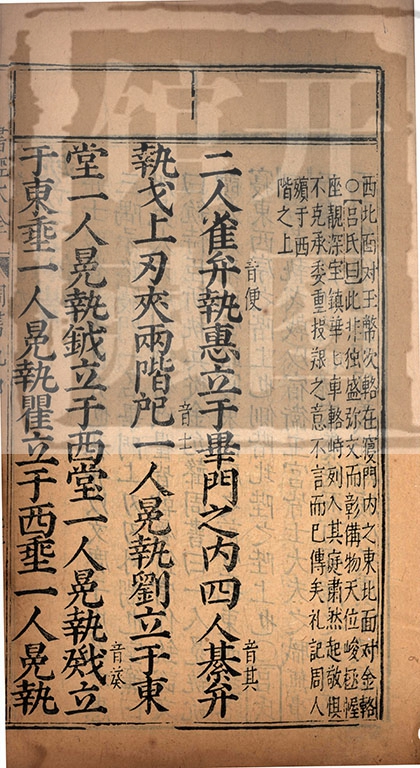 西北面对玉輅次輅在寢門内之東北面对金輅
○吕氏曰此非独盛弥文而彰備物天位峻極幄
座靚深宝鎮華七車輅峙列入其庭肅然起敬惧
不克承委重投艱之意不言而已傳矣礼記周人
殯于西
階之上
二人雀弁執惠立于畢門之内四人綦弁
音便
音其
執戈上刃夾兩階戺一人冕執劉立于東
音士
堂一人冕執鉞立于西堂一人冕執戣立
音葵
于東垂一人冕執瞿立于西垂一人冕執
書經大全
周書九